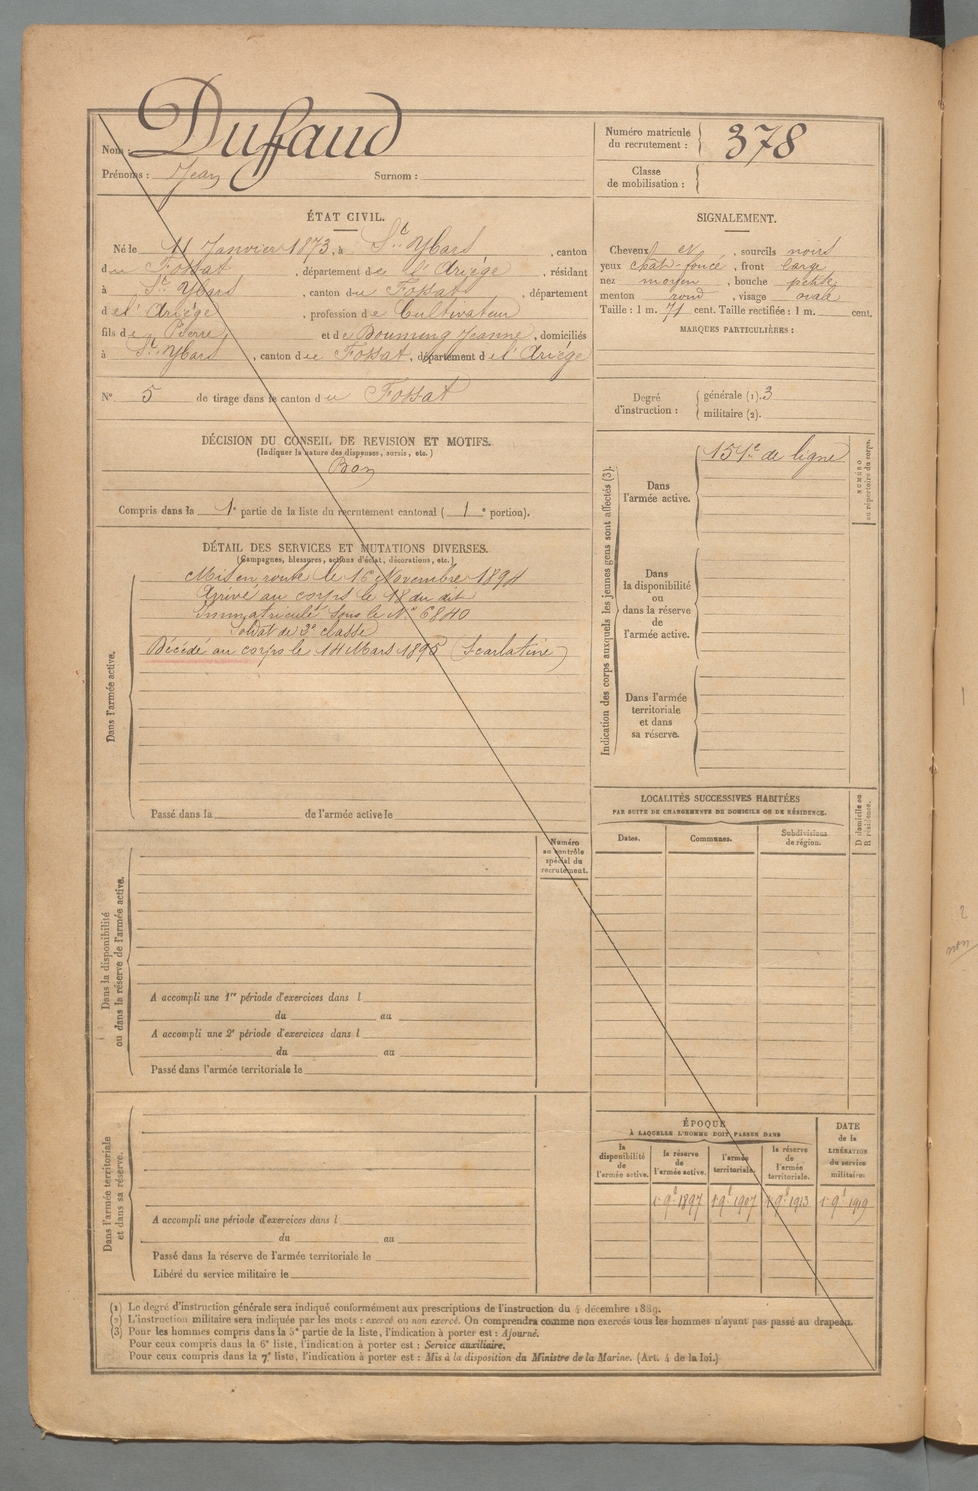 Nom : Duffaud
Prénoms : Jean Surnom :
Numéro matricule du recrutement : 378
Classe de mobilisation :
ÉTAT CIVIL.
Né le 11 Janvier 1873, à St Ybars, canton
du Fossat, département de l'Ariège, résidant
à St Ybars, canton du Fossat, département
de l'Ariège, profession de Cultivateur
fils de Pierre et de Boumeng Jeanne, domiciliés
à St Ybars, canton du Fossat, département de l'Ariège
N° 5 de tirage dans le canton du Fossat
SIGNALEMENT.
Cheveux et, sourcils noirs
yeux chât-foncé, front large
nez moyen, bouche petite
menton rond, visage ovale
Taille : 1 m. 71 cent. Taille rectifiée : 1 m. cent.
MARQUES PARTICULIÈRES :
Degré d'instruction : générale (1). 3
militaire (2).
DÉCISION DU CONSEIL DE REVISION ET MOTIFS.
(Indiquer la nature des dispenses, sursis, etc.)
Bon
Compris dans la 1e partie de la liste du recrutement cantonal ( 1e portion).
DÉTAIL DES SERVICES ET MUTATIONS DIVERSES.
(Campagnes, blessures, actions d'éclat, décorations, etc.)
Dans l'armée active.
Mis en route le 16 Novembre 1894
Arrivé au corps le 18 du dit
Immatriculé sous le N° 6840
Soldat de 2e classe
Décédé au corps le 14 Mars 1895 (Scarlatine)
Passé dans la de l'armée active le
Dans la disponibilité
ou dans la réserve de l'armée active.
Numéro
au contrôle
spécial du
recrutement.
A accompli une 1re période d'exercices dans l
du au
A accompli une 2e période d'exercices dans l
du au
Passé dans l'armée territoriale le
Dans l'armée territoriale
et dans sa réserve.
A accompli une période d'exercices dans l
du au
Passé dans la réserve de l'armée territoriale le
Libéré du service militaire le
Indication des corps auxquels les jeunes gens sont affectés (3).
NUMÉRO
au répertoire du corps.
Dans
l'armée active.
151e de ligne
Dans
la disponibilité
ou
dans la réserve
de
l'armée active.
Dans l'armée
territoriale
et dans
sa réserve.
LOCALITÉS SUCCESSIVES HABITÉES
PAR SUITE DE CHANGEMENTS DE DOMICILE OU DE RÉSIDENCE.
Dates. Communes. Subdivisions de région.
D domicile ou
R résidence.
ÉPOQUE
À LAQUELLE L'HOMME DOIT PASSER DANS
la disponibilité de l'armée active.
la réserve de l'armée active.
l'armée territoriale.
la réserve de l'armée territoriale.
DATE de la LIBÉRATION du service militaire.
1er 9bre 1897 1er 9bre 1907 1er 9bre 1913 1er 9bre 1919
(1) Le degré d'instruction générale sera indiqué conformément aux prescriptions de l'instruction du 4 décembre 1889.
(2) L'instruction militaire sera indiquée par les mots : exercé ou non exercé. On comprendra comme non exercés tous les hommes n'ayant pas passé au drapeau.
(3) Pour les hommes compris dans la 5e partie de la liste, l'indication à porter est : Ajourné.
Pour ceux compris dans la 6e liste, l'indication à porter est : Service auxiliaire.
Pour ceux compris dans la 7e liste, l'indication à porter est : Mis à la disposition du Ministre de la Marine. (Art. 4 de la loi.)